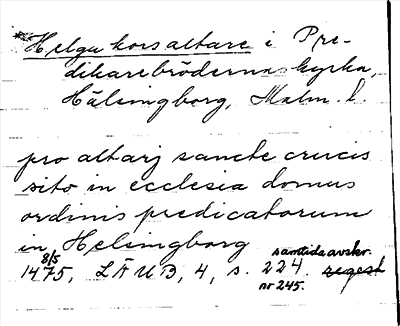 *Helga kors altare i Pre-
dikarebrödernas kyrka,
Hälsingborg, Malm. l.
pro altarj sancte crucis
sito in ecclesia domus
ordinis predicatorum
in Helsingborg
8/5 samtida avskr.
1475, LÄUB, 4, s. 224. regest
nr 245.